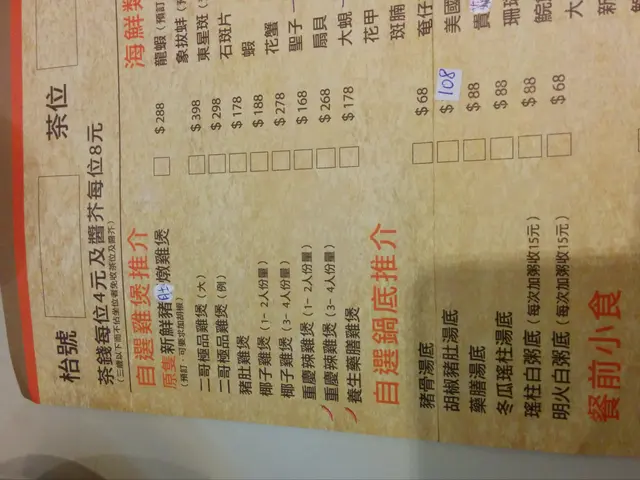 枱號
茶位
茶錢每位4元及醬芥每位8元
(三歲以下而不佔坐位者免收茶位及醬芥)
自選雞煲推介
原隻新鮮豬肚燉雞煲 $288
(預訂:可要求加胡椒)
二哥極品雞煲(大) $398
二哥極品雞煲(例) $298
豬肚雞煲 $178
椰子雞煲(1-2人份量) $188
椰子雞煲(3-4人份量) $278
重慶辣雞煲(1-2人份量) $168
重慶辣雞煲(3-4人份量) $268
養生藥膳雞煲 $178
自選鍋底推介
豬骨湯底 $68
胡椒豬肚湯底 $108
藥膳湯底 $88
冬瓜瑤柱湯底 $88
瑤柱白粥底(每次加粥收15元) $88
明火白粥底(每次加粥收15元) $68
餐前小食
海鮮類
龍蝦(預訂
象拔蚌(
東星斑(
石斑片
蝦
花蟹
聖子
扇貝
大蜆
花甲
斑腩
奄仔
美國
貴
珊
鯇
大